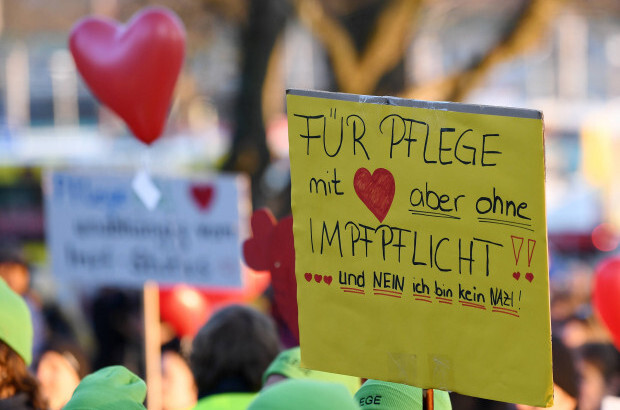 FÜR PFLEGE
mit ♥ aber ohne
IMPFPFLICHT!!
♥♥♥ und NEIN ich bin kein NAZI!
Pflege
unabhängig vom
EGE